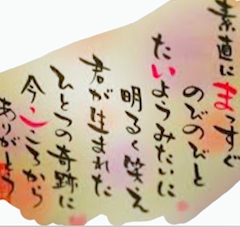 素直にまっすぐ
のびのびと
たいようみたいに
明るく笑え
君が生まれた
ひとつの奇跡に
今こころから
ありがとう